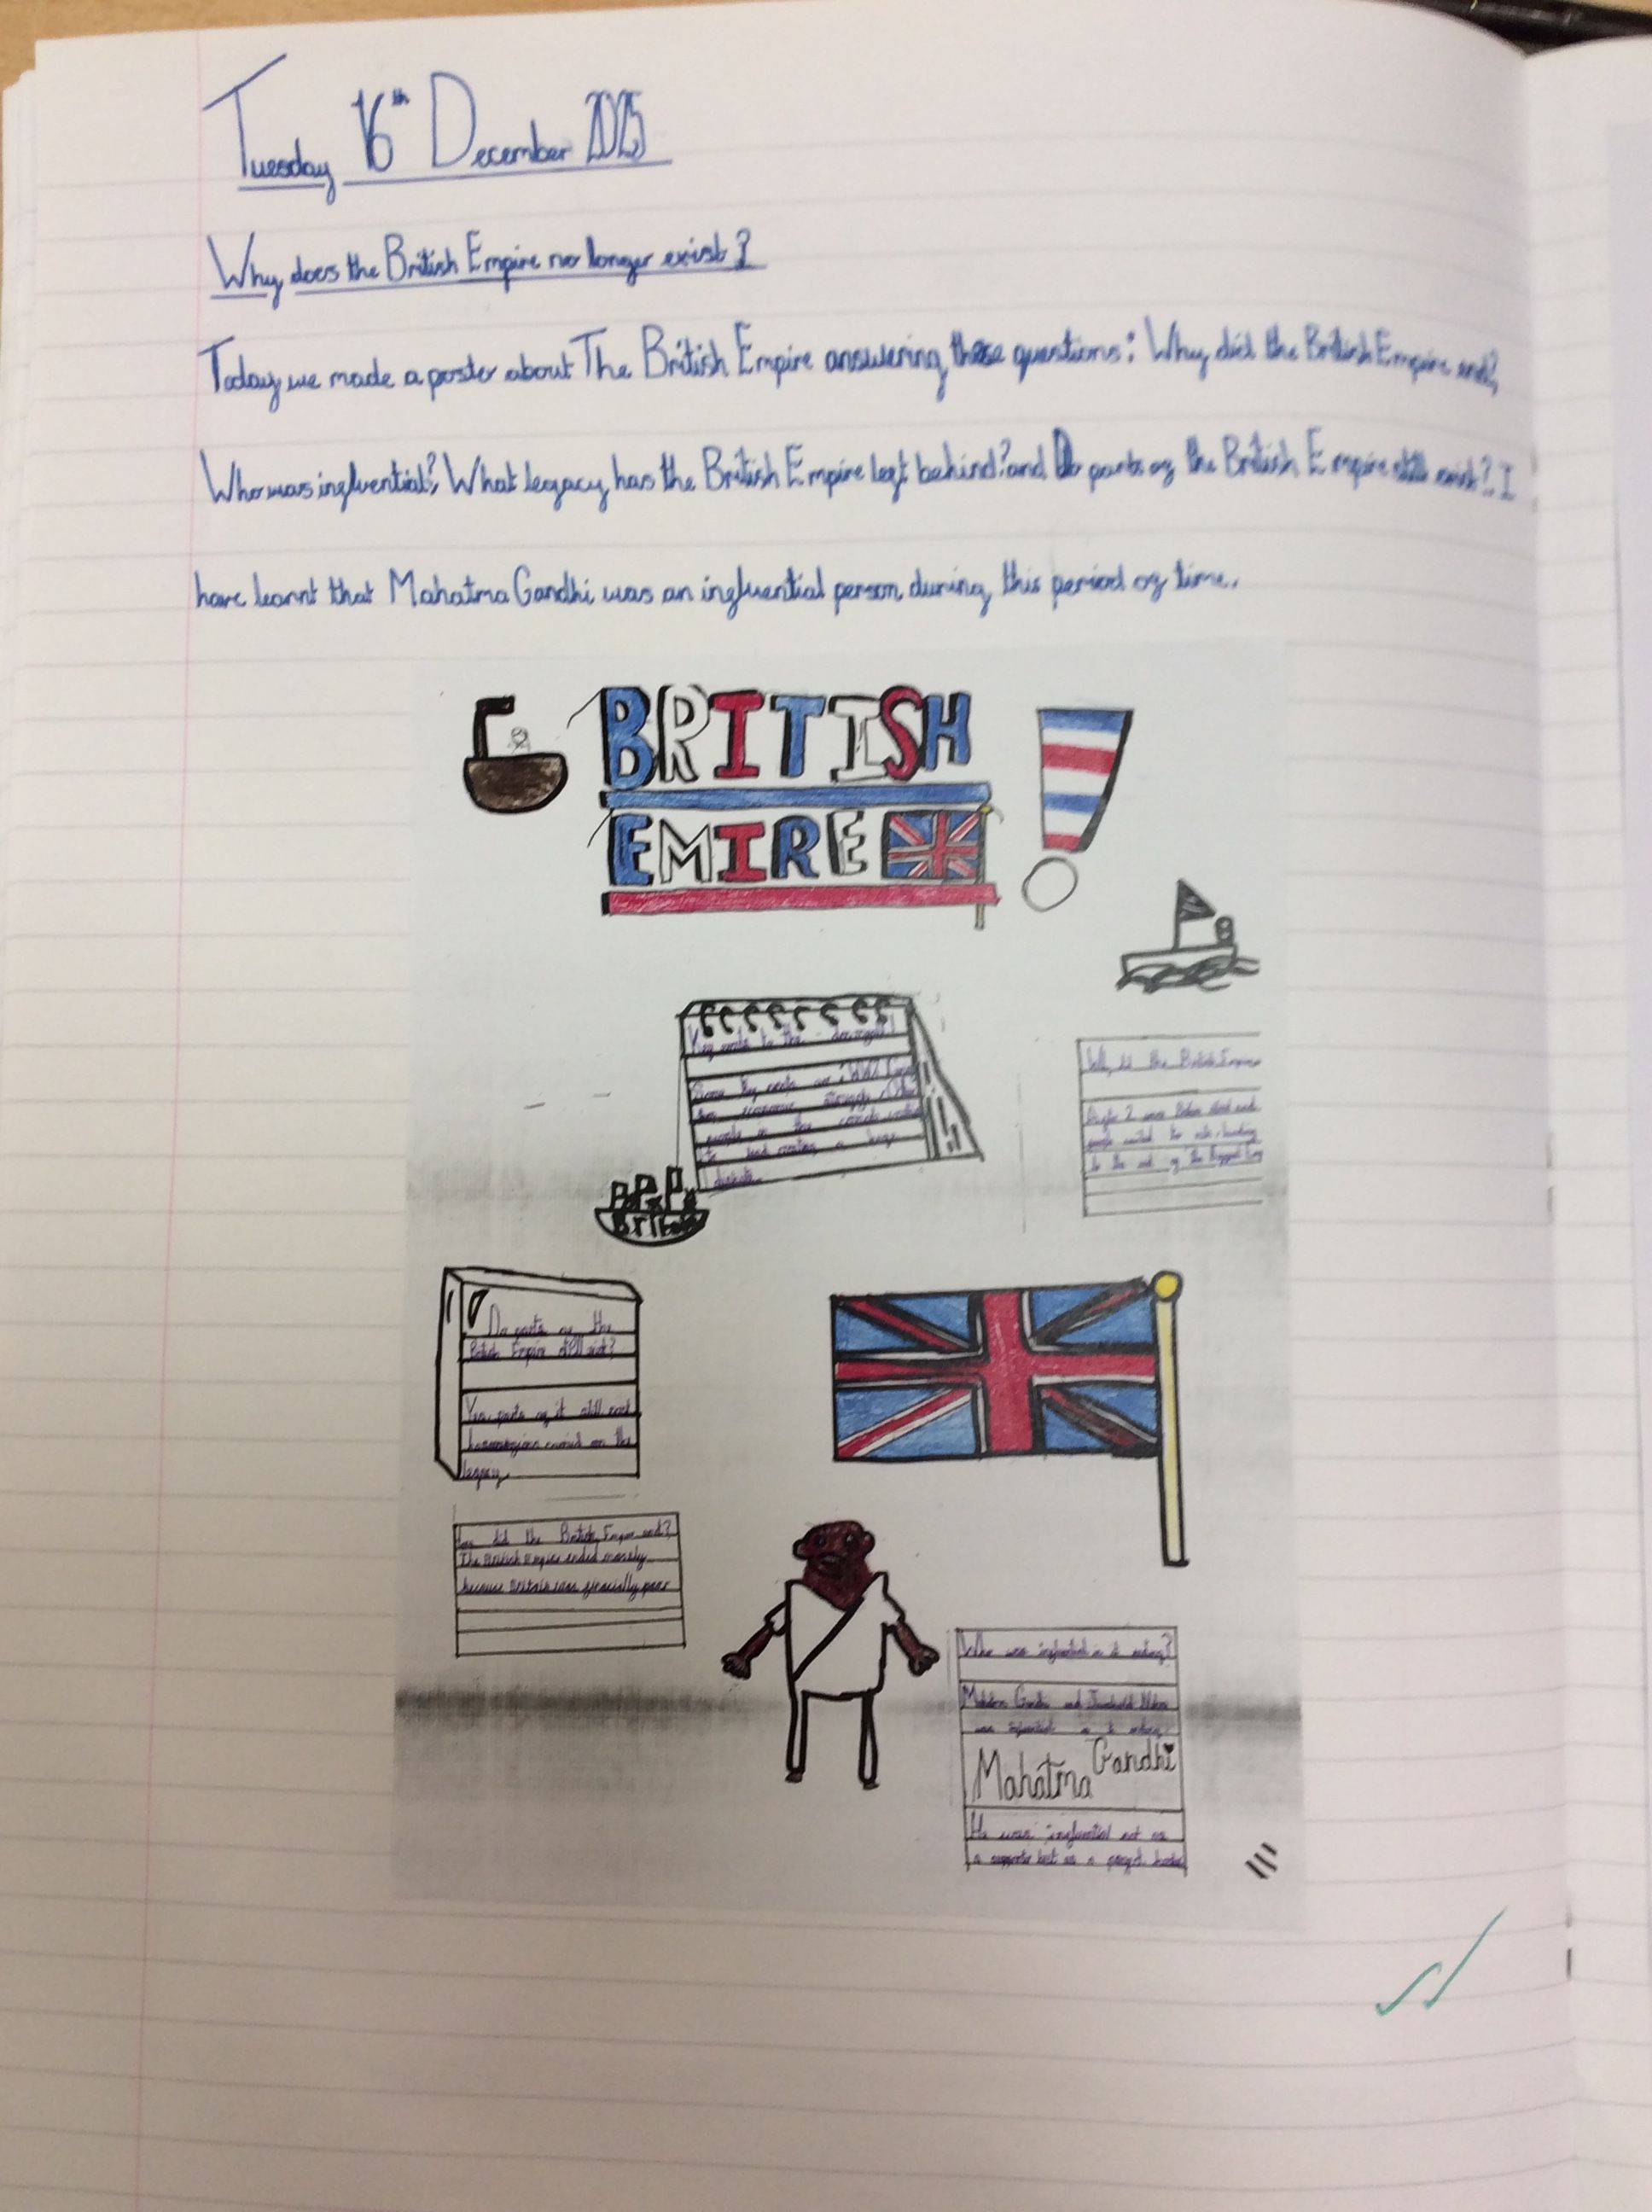 Tuesday 16th December 2025
Why does the British Empire no longer exist?
Today we made a poster about The British Empire answering these questions: Why did the British Empire end?
Who was influential? What legacy has the British Empire left behind? and Do parts of the British Empire still exist? I
have learnt that Mahatma Gandhi was an influential person during this period of time.
BRITISH
EMIRE
Key events to the
Some key events are: WW2
economic struggle
people in the
to lead creating a large
Why did the British Empire
people wanted to rule, leading
to the end of the biggest
Britain
Do parts of the
British Empire still exist?
Yes, parts of it still exist
on the
legacy.
How did the British Empire end?
The British Empire ended mostly
because Britain was financially poor
Who was influential in it ending?
Mahatma Gandhi and
was influential in it ending.
Mahatma Gandhi
He was influential not as
a supporter but as a